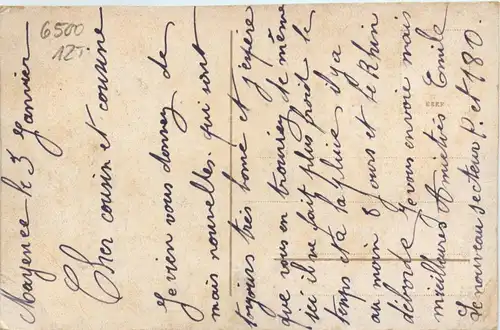 6500
12T
Mayence le 3 Janvier
Cher cousin et cousine
Je vien vous donney de
mais nouvelles qui sont
toujours très bonne et j'espère
que vous en trouvey de même
ici il ne fait plus froid le
temps et à la pluie il y a
au moin 8 jours et le Rhin
déborde Je vous envoie mais
meilleures Amitiés Emile
Le nouveau secteur P. et 180.